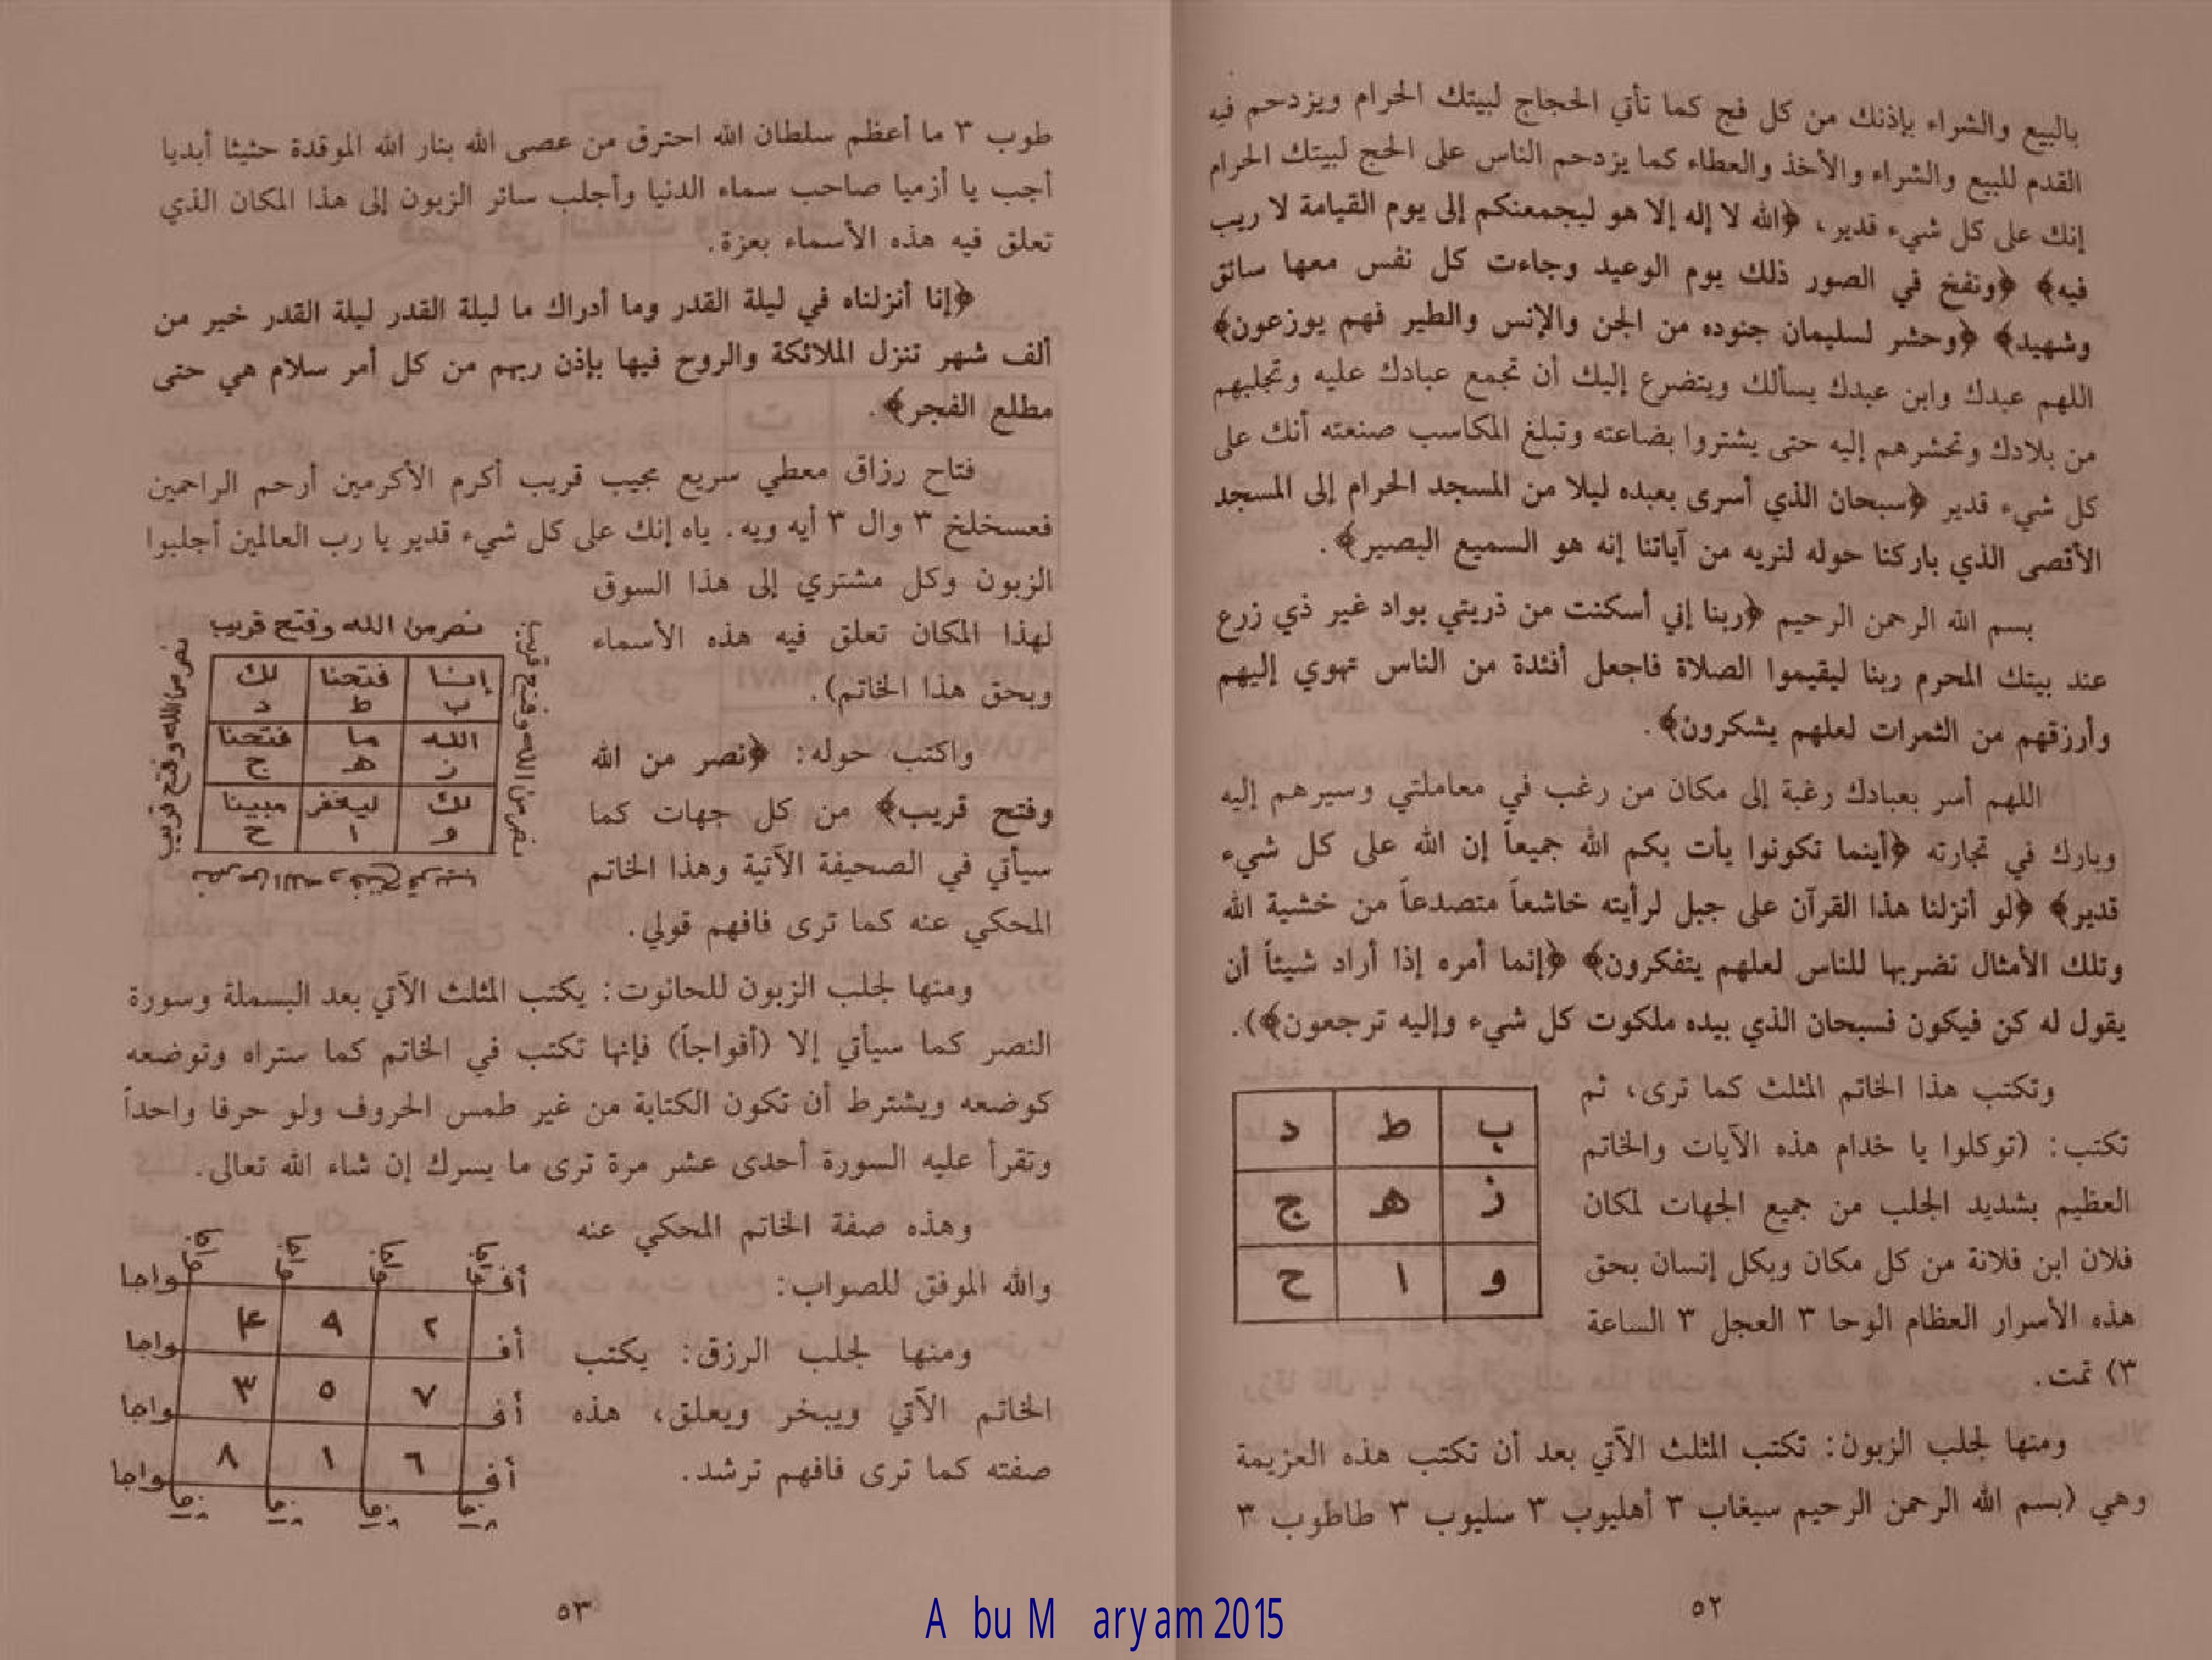 بالبيع والشراء بإذنك من كل فج كما تأتي الحجاج لبيتك الحرام ويزدحم فيه
القدم للبيع والشراء والأخذ والعطاء كما يزدحم الناس على الحج لبيتك الحرام
إنك على كل شيء قدير، ﴿الله لا إله إلا هو ليجمعنكم إلى يوم القيامة لا ريب
فيه﴾ ﴿ونفخ في الصور ذلك يوم الوعيد وجاءت كل نفس معها سائق
وشهيد﴾ ﴿وحشر لسليمان جنوده من الجن والإنس والطير فهم يوزعون﴾
اللهم عبدك وابن عبدك يسألك ويتضرع إليك أن تجمع عبادك عليه وتجلبهم
من بلادك وتحشرهم إليه حتى يشتروا بضاعته وتبلغ المكاسب صنعته أنك على
كل شيء قدير ﴿سبحان الذي أسرى بعبده ليلا من المسجد الحرام إلى المسجد
الأقصى الذي باركنا حوله لنريه من آياتنا إنه هو السميع البصير﴾.
بسم الله الرحمن الرحيم ﴿ربنا إني أسكنت من ذريتي بواد غير ذي زرع
عند بيتك المحرم ربنا ليقيموا الصلاة فاجعل أفئدة من الناس تهوي إليهم
وأرزقهم من الثمرات لعلهم يشكرون﴾.
اللهم أسر بعبادك رغبة إلى مكان من رغب في معاملتي وسيرهم إليه
وبارك في تجارته ﴿أينما تكونوا يأت بكم الله جميعاً إن الله على كل شيء
قدير﴾ ﴿لو أنزلنا هذا القرآن على جبل لرأيته خاشعاً متصدعاً من خشية الله
وتلك الأمثال نضربها للناس لعلهم يتفكرون﴾ ﴿إنما أمره إذا أراد شيئاً أن
يقول له كن فيكون فسبحان الذي بيده ملكوت كل شيء وإليه ترجعون﴾).
وتكتب هذا الخاتم المثلث كما ترى، ثم
تكتب: (توكلوا يا خدام هذه الآيات والخاتم
العظيم بشديد الجلب من جميع الجهات لمكان
فلان ابن فلانة من كل مكان وبكل إنسان بحق
هذه الأسرار العظام الوحا ٣ العجل ٣ الساعة
٣) تمت.
ب ط د
ز هـ ج
و ا ح
ومنها لجلب الزبون: تكتب المثلث الآتي بعد أن تكتب هذه العزيمة
وهي (بسم الله الرحمن الرحيم سيغاب ٣ أهليوب ٣ سليوب ٣ طاطوب ٣
٥٢
طوب ٣ ما أعظم سلطان الله احترق من عصى الله بنار الله الموقدة حثيثا أبديا
أجب يا أزميا صاحب سماء الدنيا وأجلب سائر الزبون إلى هذا المكان الذي
تعلق فيه هذه الأسماء بعزة.
﴿إنا أنزلناه في ليلة القدر وما أدراك ما ليلة القدر ليلة القدر خير من
ألف شهر تنزل الملائكة والروح فيها بإذن ربهم من كل أمر سلام هي حتى
مطلع الفجر﴾.
فتاح رزاق معطي سريع مجيب قريب أكرم الأكرمين أرحم الراحمين
فعسخلخ ٣ وال ٣ أيه ويه. ياه إنك على كل شيء قدير يا رب العالمين أجلبوا
الزبون وكل مشتري إلى هذا السوق
لهذا المكان تعلق فيه هذه الأسماء
وبحق هذا الخاتم).
واكتب حوله: ﴿نصر من الله
وفتح قريب﴾ من كل جهات كما
سيأتي في الصحيفة الآتية وهذا الخاتم
المحكي عنه كما ترى فافهم قولي.
نصر من الله وفتح قريب
نصر من الله وفتح قريب
إنا فتحنا لك
ب ط د
الله ما فتحنا
ز هـ ج
لك ليغفر مبينا
و ا ح
نصر من الله وفتح قريب
نصر من الله وفتح قريب
ومنها لجلب الزبون للحانوت: يكتب المثلث الآتي بعد البسملة وسورة
النصر كما سيأتي إلا (أفواجاً) فإنها تكتب في الخاتم كما ستراه وتوضعه
كوضعه ويشترط أن تكون الكتابة من غير طمس الحروف ولو حرفا واحداً
وتقرأ عليه السورة أحدى عشر مرة ترى ما يسرك إن شاء الله تعالى.
وهذه صفة الخاتم المحكي عنه
والله الموفق للصواب:
ومنها لجلب الرزق: يكتب
الخاتم الآتي ويبخر ويعلق، هذه
صفته كما ترى فافهم ترشد.
واجا واجا واجا واجا
أفـواجا
٢ ٩ ٤
أفـواجا
٧ ٥ ٣
أفـواجا
٦ ١ ٨
أفـواجا
٥٣
Abu Maryam 2015